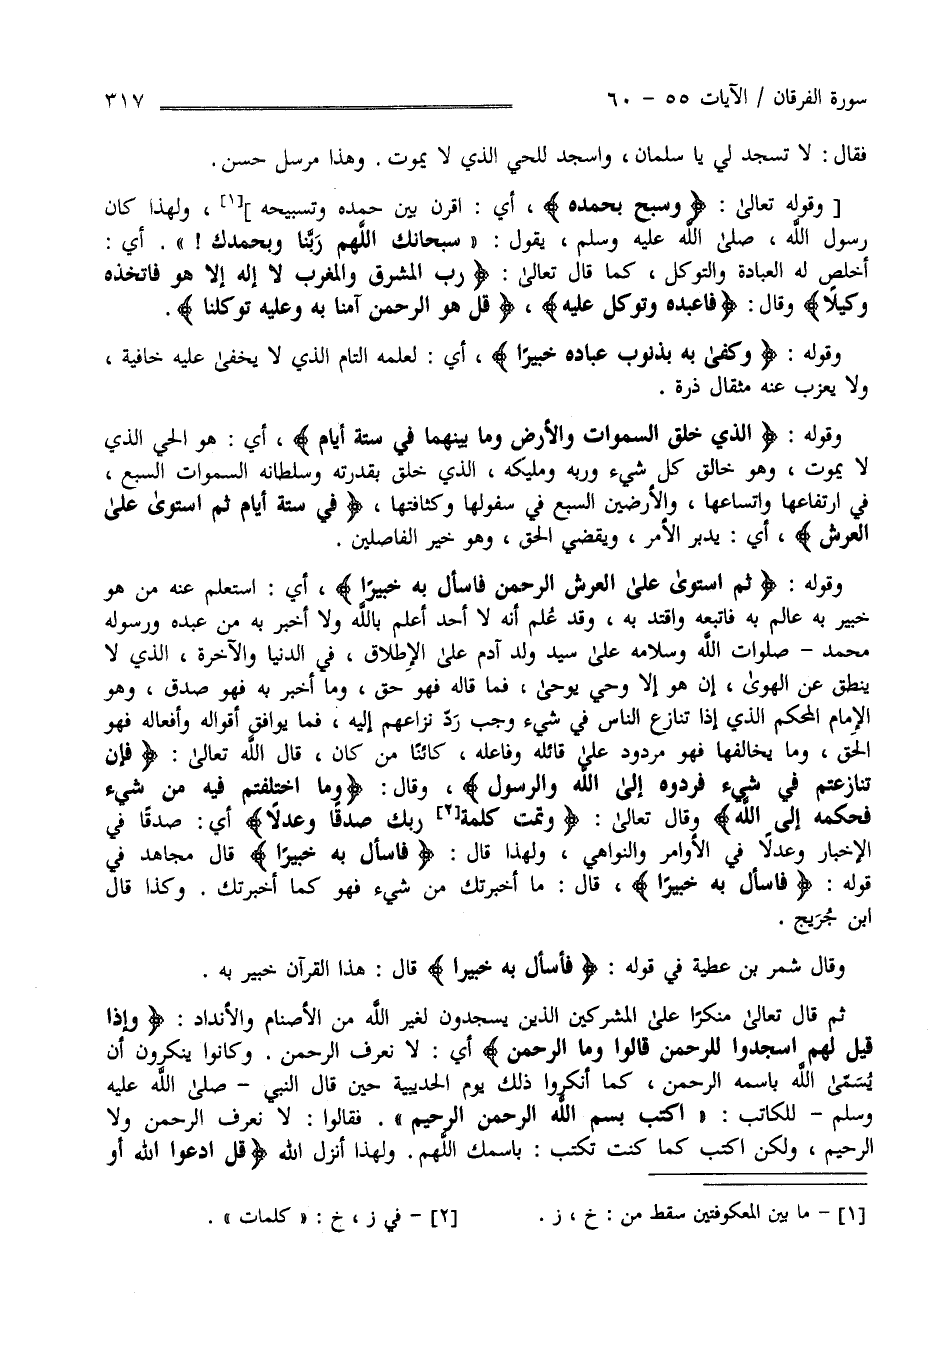 سورة الفرقان / الآيات ٥٥ - ٦٠ ٣١٧
فقال : لا تسجد لي يا سلمان ، واسجد للحي الذي لا يموت . وهذا مرسل حسن .
[ وقوله تعالىٰ : ﴿ وسبح بحمده ﴾ ، أي : اقرن بين حمده وتسبيحه ][١] ، ولهذا كان
رسول اللَّه ، صلىٰ اللَّه عليه وسلم ، يقول : « سبحانك اللَّهم رَبَّنا وبحمدك ! » . أي :
أخلص له العبادة والتوكل ، كما قال تعالىٰ : ﴿ رب المشرق والمغرب لا إله إلا هو فاتخذه
وكيلًا ﴾ وقال : ﴿ فاعبده وتوكل عليه ﴾ ، ﴿ قل هو الرحمن آمنا به وعليه توكلنا ﴾ .
وقوله : ﴿ وكفىٰ به بذنوب عباده خبيرًا ﴾ ، أي : لعلمه التام الذي لا يخفىٰ عليه خافية ،
ولا يعزب عنه مثقال ذرة .
وقوله : ﴿ الذي خلق السموات والأرض وما بينهما في ستة أيام ﴾ ، أي : هو الحي الذي
لا يموت ، وهو خالق كل شيء وربه ومليكه ، الذي خلق بقدرته وسلطانه السموات السبع ،
في ارتفاعها واتساعها ، والأرضين السبع في سفولها وكثافتها ، ﴿ في ستة أيام ثم استوىٰ علىٰ
العرش ﴾ ، أي : يدبر الأمر ، ويقضي الحق ، وهو خير الفاصلين .
وقوله : ﴿ ثم استوىٰ علىٰ العرش الرحمن فاسأل به خبيرًا ﴾ ، أي : استعلم عنه من هو
خبير به عالم به فاتبعه واقتد به ، وقد عُلم أنه لا أحد أعلم باللَّه ولا أخبر به من عبده ورسوله
محمد - صلوات اللَّه وسلامه علىٰ سيد ولد آدم علىٰ الإطلاق ، في الدنيا والآخرة ، الذي لا
ينطق عن الهوىٰ ، إن هو إلا وحي يوحىٰ ، فما قاله فهو حق ، وما أخبر به فهو صدق ، وهو
الإمام المحكم الذي إذا تنازع الناس في شيء وجب رَدّ نزاعهم إليه ، فما يوافق أقواله وأفعاله فهو
الحق ، وما يخالفها فهو مردود علىٰ قائله وفاعله ، كائنًا من كان ، قال اللَّه تعالىٰ : ﴿ فإن
تنازعتم في شيء فردوه إلىٰ اللَّه والرسول ﴾ ، وقال : ﴿ وما اختلفتم فيه من شيء
فحكمه إلى اللَّه ﴾ وقال تعالىٰ : ﴿ وتمت كلمة[٢] ربك صدقًا وعدلًا ﴾ أي : صدقًا في
الإخبار وعدلًا في الأوامر والنواهي ، ولهذا قال : ﴿ فاسأل به خبيرًا ﴾ قال مجاهد في
قوله : ﴿ فاسأل به خبيرًا ﴾ ، قال : ما أخبرتك من شيء فهو كما أخبرتك . وكذا قال
ابن جُرَيج .
وقال شمر بن عطية في قوله : ﴿ فأسأل به خبيرا ﴾ قال : هذا القرآن خبير به .
ثم قال تعالىٰ منكرًا علىٰ المشركين الذين يسجدون لغير اللَّه من الأصنام والأنداد : ﴿ وإذا
قيل لهم اسجدوا للرحمن قالوا وما الرحمن ﴾ أي : لا نعرف الرحمن . وكانوا ينكرون أن
يُسَمّىٰ اللَّه باسمه الرحمن ، كما أنكروا ذلك يوم الحديبية حين قال النبي - صلىٰ اللَّه عليه
وسلم - للكاتب : « اكتب بسم اللَّه الرحمن الرحيم » . فقالوا : لا نعرف الرحمن ولا
الرحيم ، ولكن اكتب كما كنت تكتب : باسمك اللَّهم . ولهذا أنزل الله ﴿ قل ادعوا الله أو
[١] - ما بين المعكوفتين سقط من : خ ، ز . [٢] - في ز ، خ : « كلمات » .